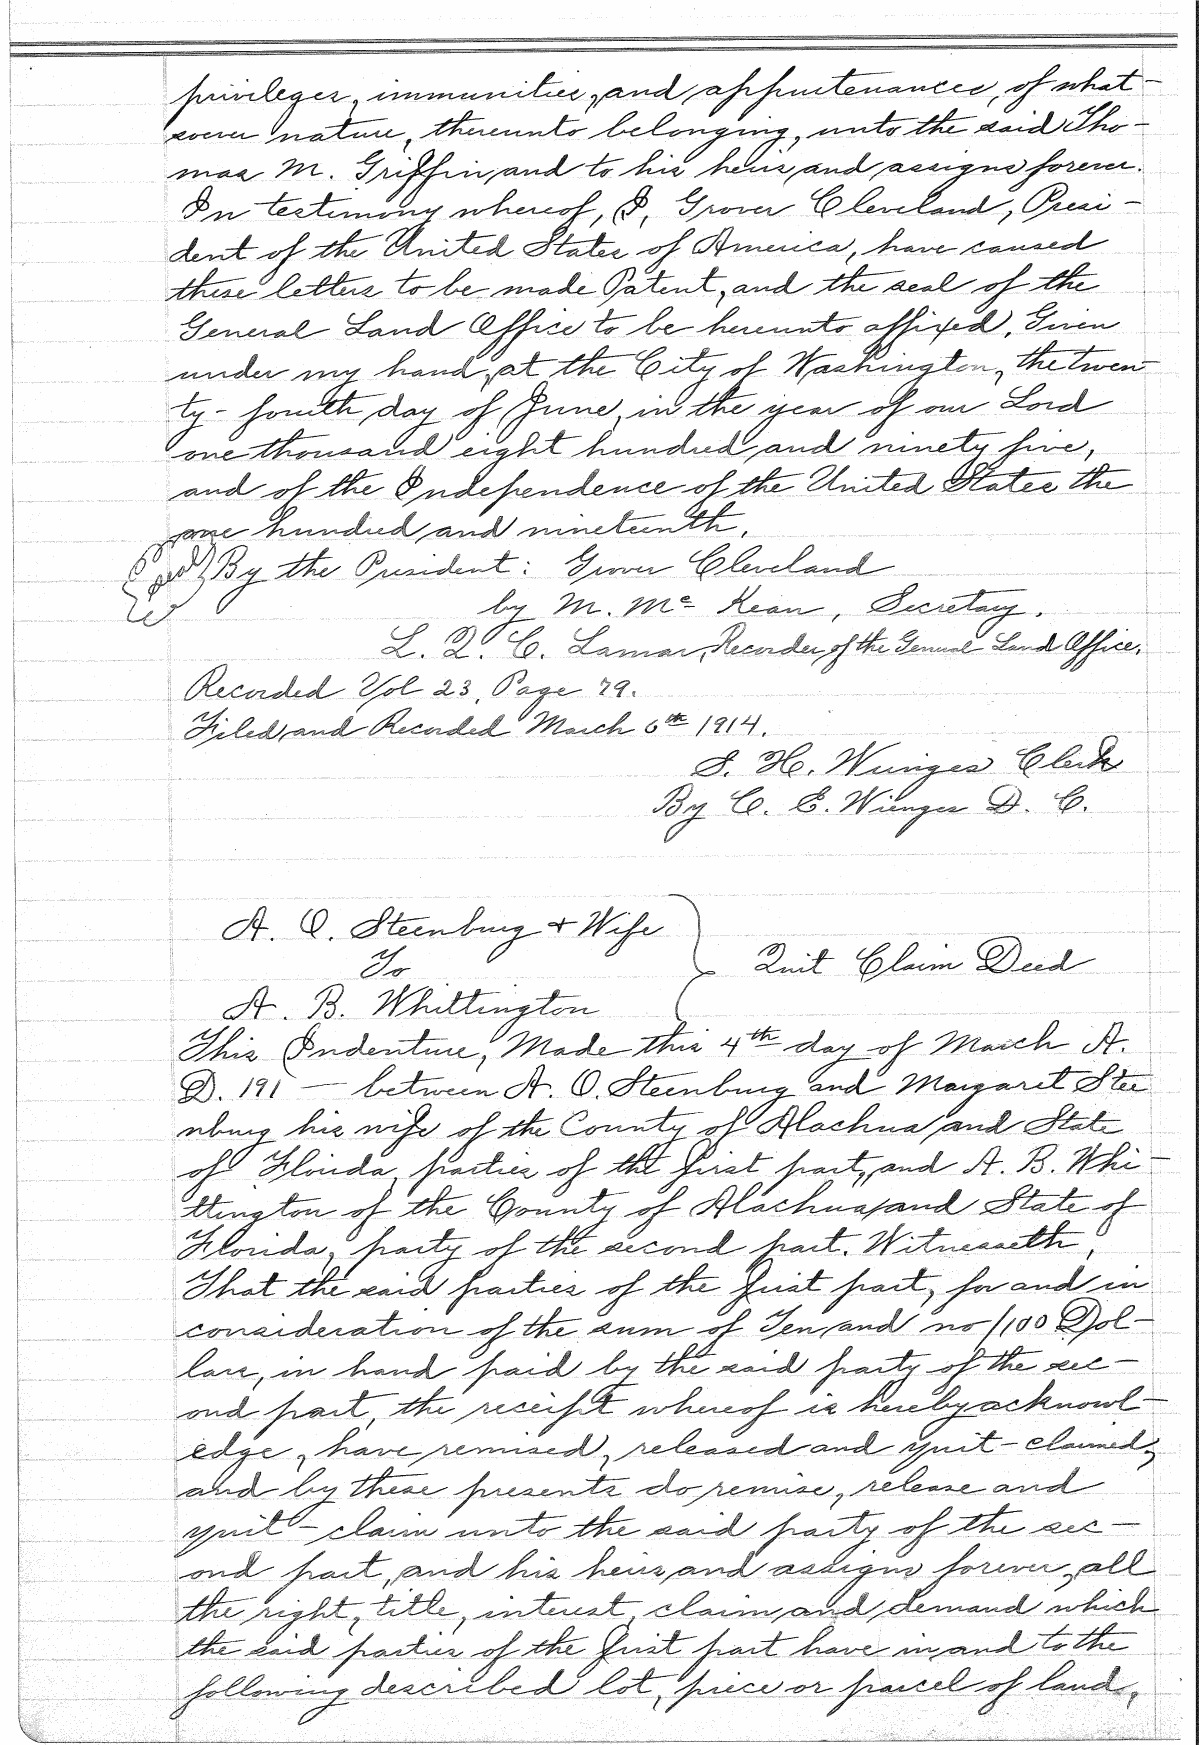 privileges, immunities, and appurtenances, of what-
soever nature, thereunto belonging, unto the said Tho-
mas M. Griffin and to his heirs and assigns forever.
In testimony whereof, I, Grover Cleveland, Presi-
dent of the United States of America, have caused
these letters to be made Patent, and the seal of the
General Land Office to be hereunto affixed. Given
under my hand, at the City of Washington, the twen
ty-fourth day of June, in the year of our Lord
one thousand eight hundred and ninety five,
and of the Independence of the United States the
one hundred and nineteenth.
By the President: Grover Cleveland
by M. McKean, Secretary.
L. Q. C. Lamar, Recorder of the General Land Office.
Recorded Vol 23, Page 79.
Filed and Recorded March 6th 1914.
S. H. Wienges Clerk
By C. E. Wienges D. C.
A. O. Steenburg & Wife
To
Quit Claim Deed
A. B. Whittington
This Indenture, Made this 4th day of March A.
D. 191— between A. O. Steenburg and Margaret Stee
nburg his wife of the County of Alachua and State
of Florida, parties of the first part, and A. B. Whi-
ttington of the County of Alachua and State of
Florida, party of the second part. Witnesseth,
That the said parties of the first part, for and in
consideration of the sum of Ten and no/100 Dol-
lars, in hand paid by the said party of the sec-
ond part, the receipt whereof is hereby acknowl-
edge, have remised, released and quit-claimed,
and by these presents do remise, release and
quit-claim unto the said party of the sec-
ond part, and his heirs and assigns forever, all
the right, title, interest, claim and demand which
the said parties of the first part have in and to the
following described lot, piece or parcel of land,